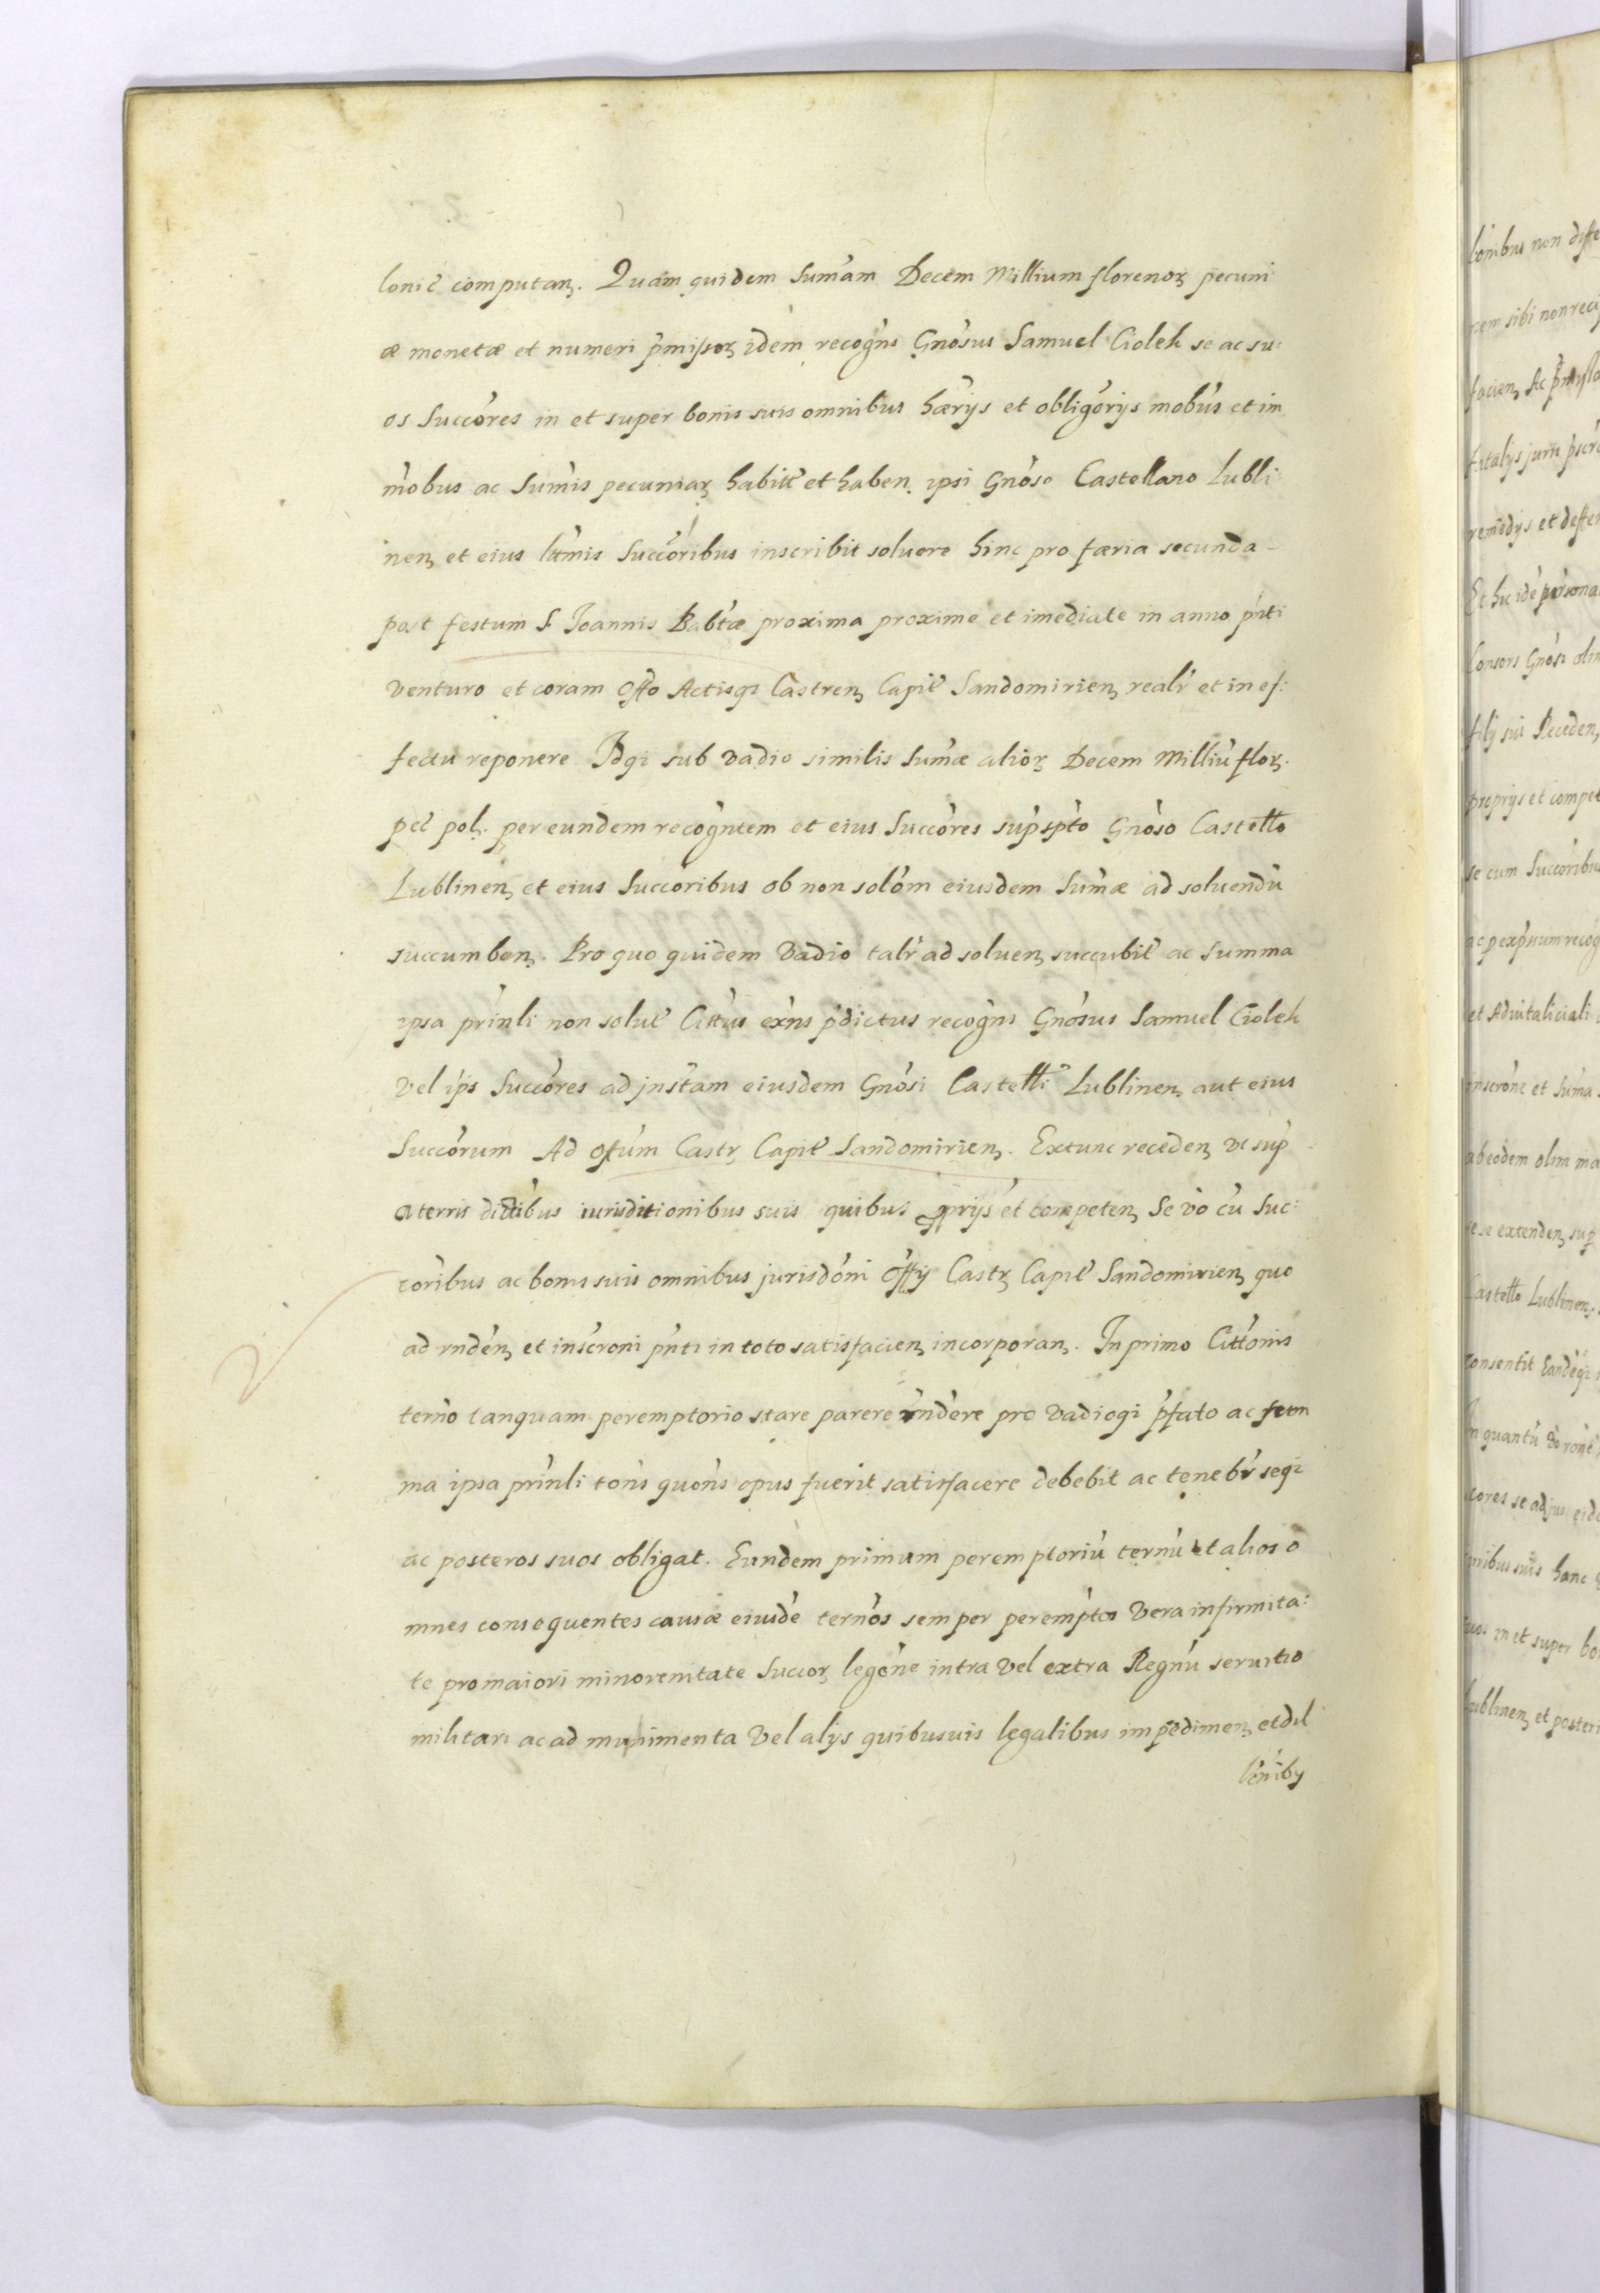 lonić computan. Quam quidem Sumam Decem Millium florenor pecuni
æ monetæ et numeri pmissor idem recogns Gnosus Samuel Ciolek se ac su:
os Succores in et super bonis suis omnibus hærijs et obligorijs mobus et im
mobus ac Sumis pecuniar habit et haben ipsi Gnoso Castellano Lubli
nen et eius ltmis Succoribus inscribit soluere hinc pro færia secunda
post festum S Joannis Babtæ proxima proxime et imediate in anno pnti
venturo et coram Offo Actisqz Castren Capit Sandomirien realr et in ef:
fectu reponere Idqz sub vadio similis Sumæ alior Decem Milliu flor.
pec pol. per eundem recogntem et eius Succores supspto Gnoso Castello
Lublinen et eius Succoribus ob non solom eiusdem Sumæ ad soluendu
succumben. Pro quo quidem Vadio talr ad soluen succubit ac Summa
ipsa prinli non solut Cittus exns pdictus recogns Gnosus Samuel Ciolek
vel ips Succores ad jnstam eiusdem Gnosi Castelli Lublinen aut eius
Succorum Ad Ofum Castr Capit Sandomirien. Extunc receden vt sup
a terris dictibus iurisditionibus suis quibus pprijs et competen Se vo cu Suc:
coribus ac bonis suis omnibus jurisdoni Offij Castr Capit Sandomirien quo
ad rnden et inscroni pnti in toto satisfacien incorporan. In primo Cittonis
terno tanquam peremptorio stare parere rndere pro Vadioqz pfato ac sum
ma ipsa prinli tons quons opus fuerit satisfacere debebit ac tenebr seqz
ac posteros suos obligat. Eundem primum peremptoriu ternu et alios o
mnes consequentes causæ eiusde ternos semper perempto Vera infirmita:
te pro maiori minorenitate Succor legone intra Vel extra Regnu seruitio
militari ac ad munimenta Vel alijs quibusuis legalibus impedimen et dil
loniby
lonibus non diffe
rem sibi non reci
facien Ac
remedijs et deffen
Et hic ide persona
Consors Gnosi olim
filij sui Receden
proprijs et compet
se cum Succoribus
recog
et Aduitaliciali
inscrone et Suma
ab eodem olim ma
se extenden sup
Castello Lublinen
consentit Eandeqz
In quantu vo
cores se ad jus eide
onibus suis hanc
suos in et super bo
Lublinen et posteri